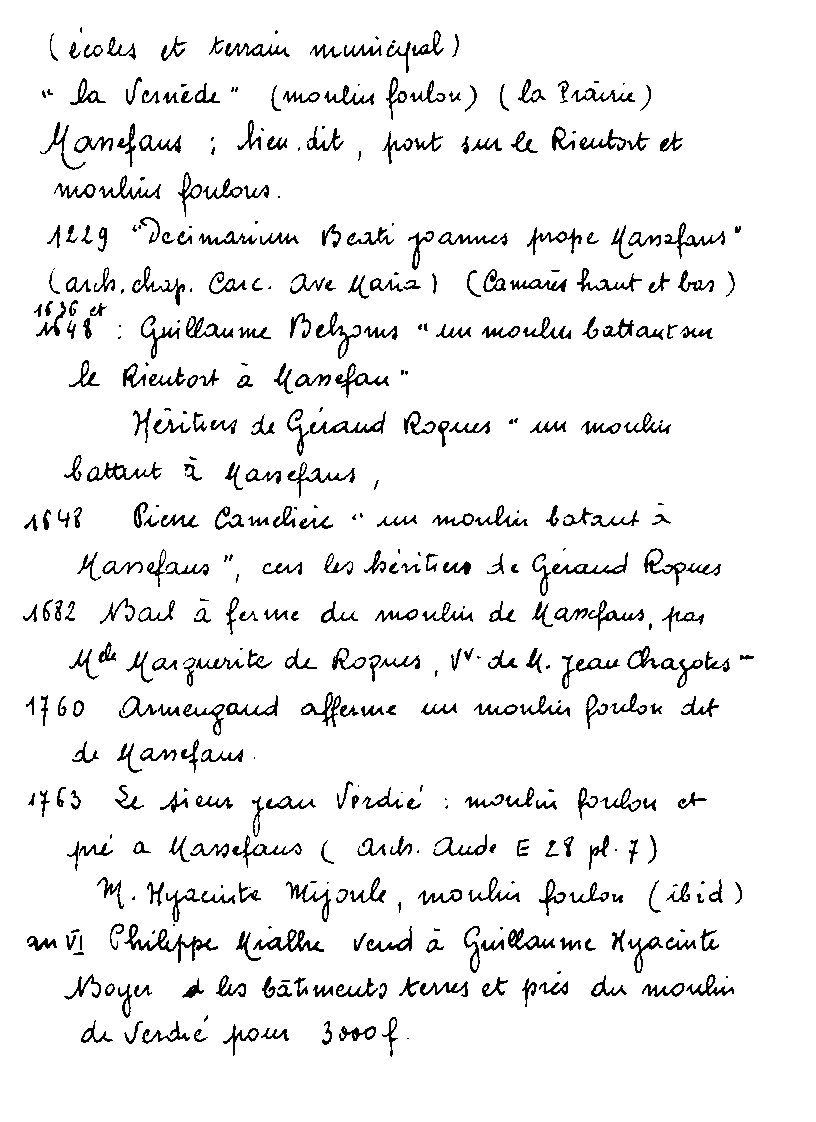 (écoles et terrain municipal)
"la Vernède" (moulin foulon) (la Prairie)
Massefans ; lieu.dit, pont sur le Rieutort et
moulins foulons.
1229 "Decimarium Beati joannes prope Massefans"
(arch. chap. Carc. Ave Maria) (Camarès haut et bas)
1636 et
1648 : Guillaume Belzons "un moulin battant sur
le Rieutort à Massefan"
Héritiers de Géraud Roques "un moulin
battant à Massefans,
1648 Pierre Camelière "un moulin batant à
Massefans", cers les héritiers de Géraud Roques
1682 Bail à ferme du moulin de Massefans, par
Mde Marguerite de Roques, Vv. de M. Jean Chazotes -
1760 Armengaud afferme un moulin foulon dit
de Massefans.
1763 Le sieur jean Verdié : moulin foulon et
pré a Massefans ( Arch. Aude E 28 pl. 7)
M. Hyacinte Mijoule, moulin foulon (ibid)
an VI Philippe Mialhe vend à Guillaume Hyacinte
Boyer les bâtiments terres et prés du moulin
de Verdié pour 3000 f.